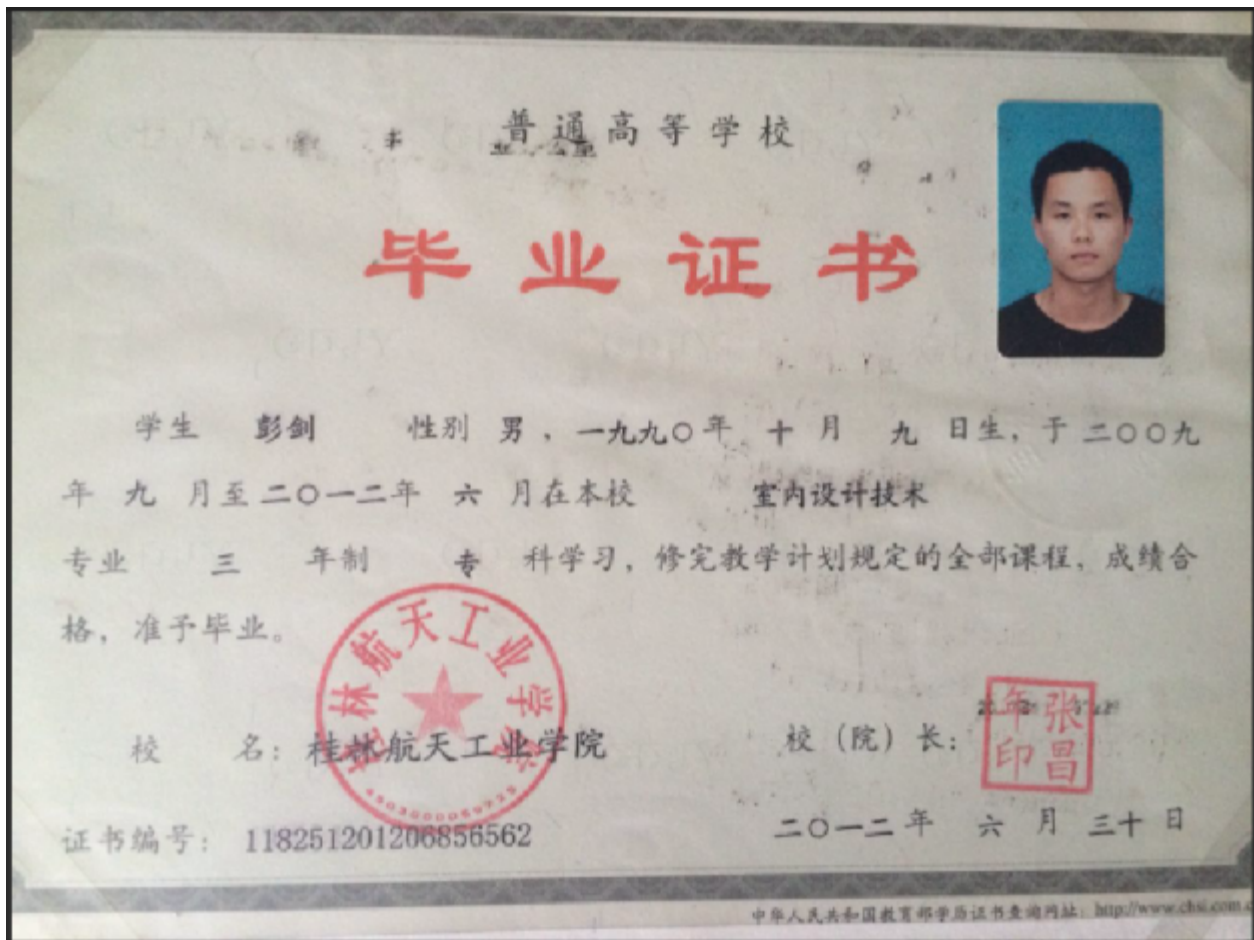 普通高等学校
毕业证书
学生 彭剑 性别 男，一九九〇年 十 月 九 日生，于二〇〇九
年 九 月至二〇一二年 六 月在本校 室内设计技术
专业 三 年制 专 科学习，修完教学计划规定的全部课程，成绩合
格，准予毕业。
桂林航天工业学院
校 名：桂林航天工业学院 校（院）长：
张昌年印
证书编号： 118251201206856562 二〇一二年 六 月 三十 日
中华人民共和国教育部学历证书查询网址：http://www.chsi.com.c